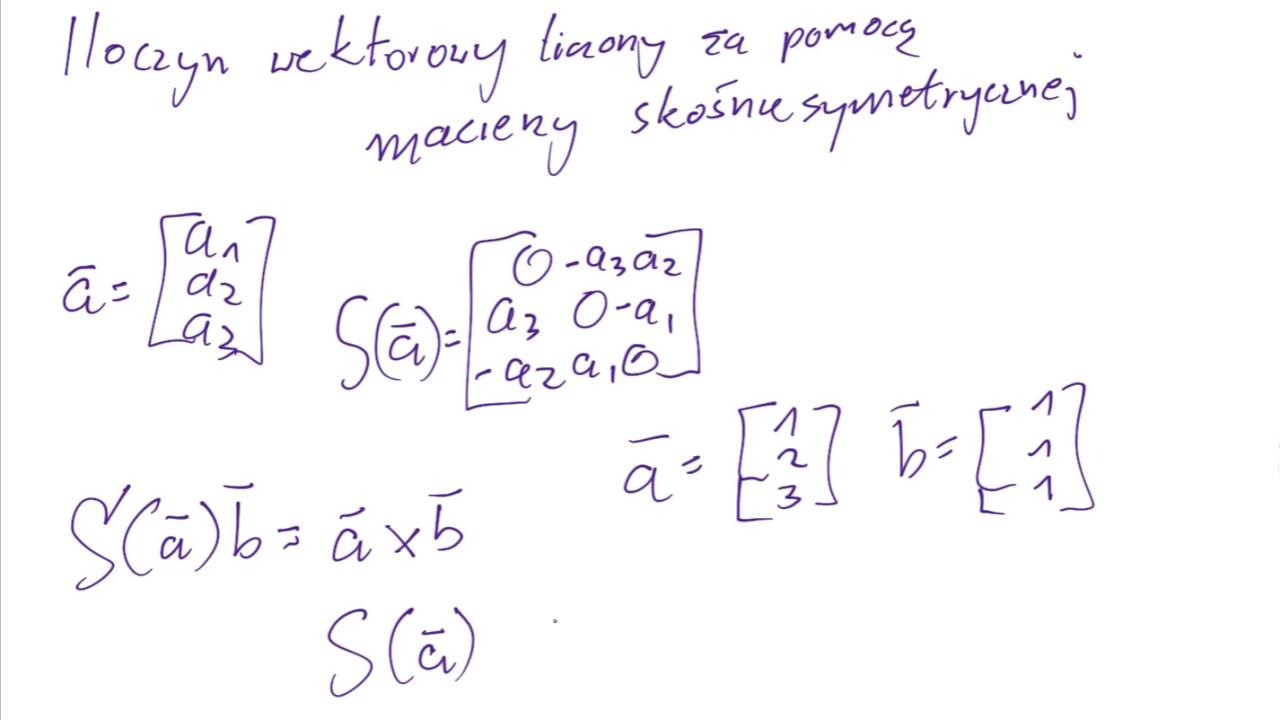 Iloczyn wektorowy liczony za pomocą
macierzy skośnie symetrycznej
ā = [a₁ a₂ a₃]
S(ā) = [0 -a₃ a₂
a₃ 0 -a₁
-a₂ a₁ 0]
ā = [1 2 3] b̄ = [1 1 1]
S(ā)b̄ = ā × b̄
S(ā)